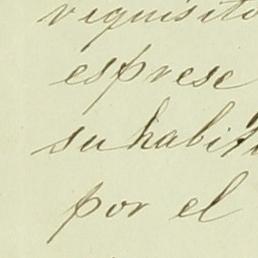 requisito
esprese
su habit
por el